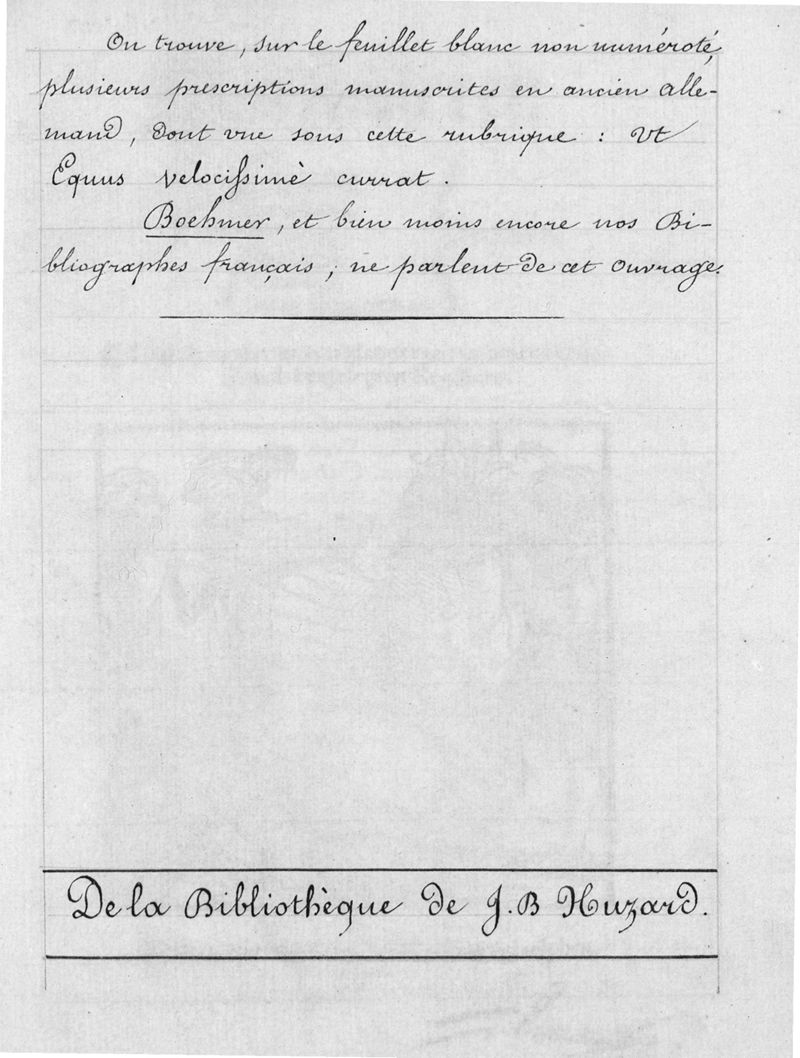 On trouve, sur le feuillet blanc non numéroté,
plusieurs prescriptions manuscrites en ancien alle-
mand, dont vne sous cette rubrique : Vt
Equus velocissimè currat.
Boehmer, et bien moins encore nos Bi-
bliographes français, ne parlent de cet ouvrage.
De la Bibliothèque de J. B Huzard.